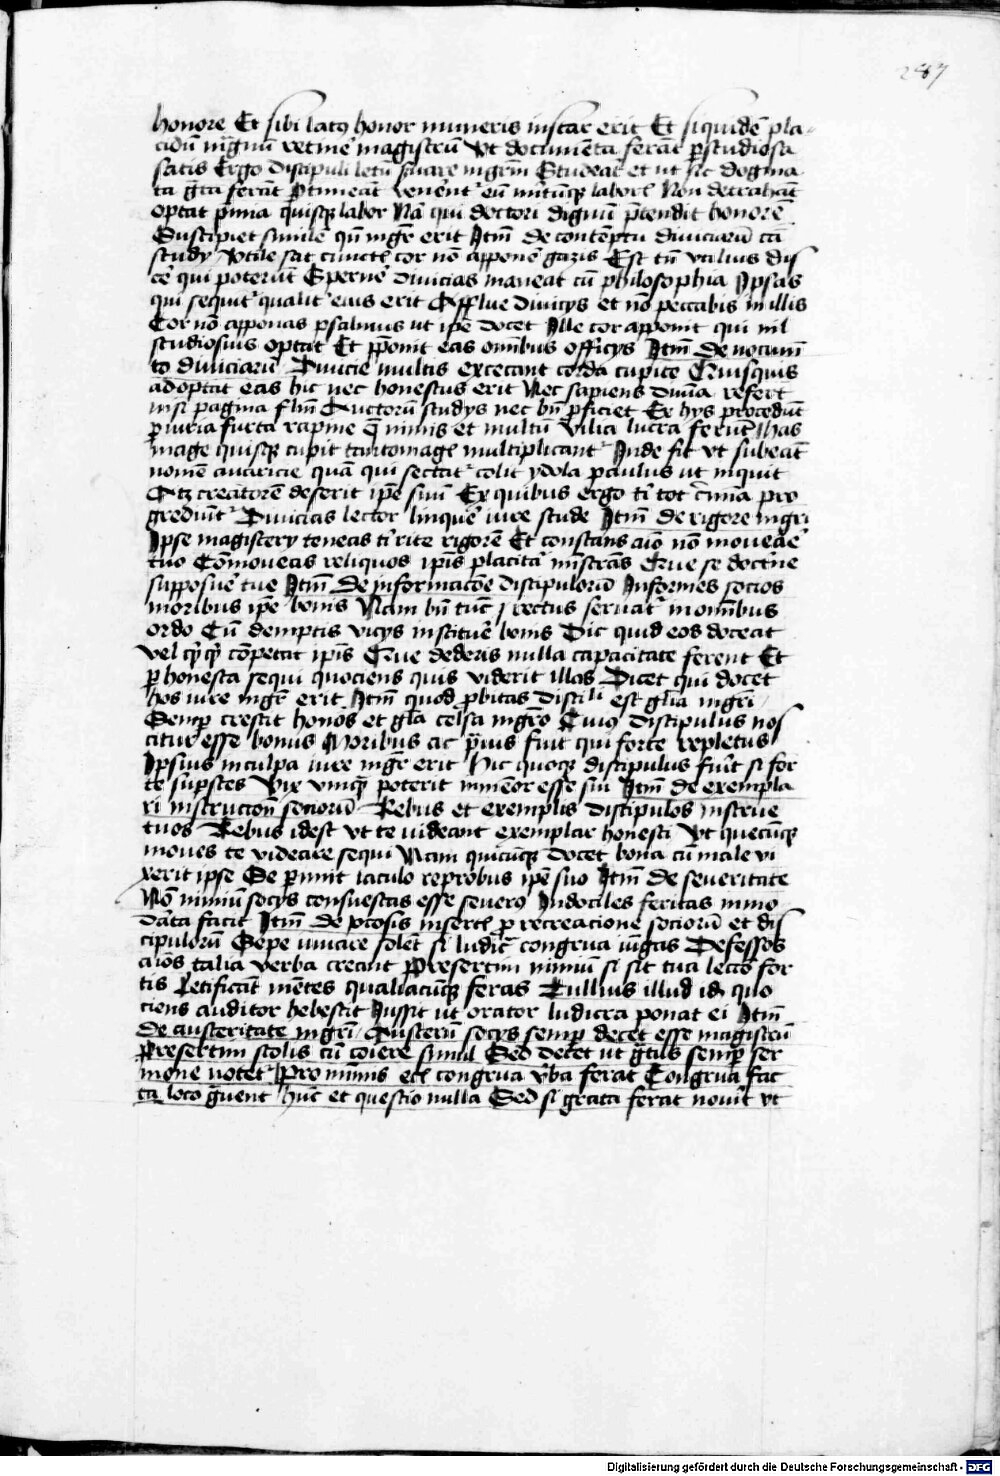 287
honore Et sibi latꝯ honor muneris instar erit Et siquidē pla
cidū mgnū retine᷑ magistrū Vt documēta ferāt pstudiosa
satis Ergo discipuli letū srare mgrm Studeāt et ut sic dogma
ta gta ferāt Ptineāt veneͬnt eū mltūqꝫ laborē Non detrahāt
optat pmia quisqꝫ labor Nā qui doctori dignū ptendit honorē
Suscipiet similē qn̄ mgr erit Itm̄ de contēptu diuiciarū cā
study Vtile sat cunctꝭ cor nō apponē gazis Est tn̄ vtilius dis
cē qui poterūt Spernē diuicias maneat cū philosophia Ipsas
qui sequit᷑ qualit᷑ eius erit Afflue diuicys et nō peccabis in illis
Cor nō apponas psalmus ut ipē docet Ille cor apponit qui nil
studiosius optat Et pponit eas omībus officys Itm̄ de nocumē
to diuiciarū Diuicie multis excecant corda cupīe Quisquis
adoptat eas hic nec honestus erit Nec sapiens diuīa refert
nisi pagina flm̄ Auctorū studys nec bn̄ pficiet Ex hys procedūt
piuria furta rapine q̄ nimis et multū vilia lucra ferūt Has
mage quisqꝫ cupit tantomagꝭ multiplicant᷑ Inde fit vt subeāt
nomē auaricie quā qui sectat᷑ colit ydola paulus ut inquit
Atqꝫ creatorē deserit ipē suū Ex quibus ergo tͥ tot cͥmīa pro
grediūt᷑ Diuicias lector linque᷑ iure stude Itm̄ de rigore mgri
Ipse magistery teneas tͥ rite rigorē Et constans aīo nō moueāe
tuo Cōmoueas reliquos ipīs placita mīstrās Que se doctͥne
supposue᷑ tue Itm̄ de informacōe discipulorū Informes socios
moribus ipē bonis Nam bn̄ tūc rectus seruat᷑ in omībus
ordo Cū demptis vicys instituē bonis Dic quid eos doceat
vel qͥqͥ cōpetat ipīs Que dederis nulla capacitate ferent Et
p honesta sequi quociens quis viderit illos Dicet qui docet
hos iure mgr erit Itm̄ quod pbitas discili est glīa mgri
Semp crescit honos et glā celsa mgro Cuiꝯ discipulus nos
citur esse bonus Moribus ac pͥus fuit qui forte repletus
Ipsius in culpa iure mgr erit Hic quoqꝫ discipulus fiūt si for
te supstes Vix vnqͣ poterit inmēor esse sui Itm̄ de exempla
ri instruccion̄ sociorū Rebus et exemplis discipulos instrue
tuos Rebus idest vt te videant exemplar honesti Vt quecūqꝫ
moues te videare sequi Nam quicūqꝫ docet bona cū male vi
xerit ipse Se pimit iaculo reprobus ipē suo Itm̄ de seueritate
Nō nimiū socys consuescas esse seuerꝯ Indociles feritas inmo
data facit Itm̄ de iocosis insertꝭ p recreacione sociorū et dis
cipulorū Sepe iuuare solet si ludicͥ congrua iūgas Defessos
aīos talia verba creant Presertim nimiū si sit tua leccō for
tis Letificāt mētes qualiacūqꝫ feras Tullius illud idē quo
ciens auditor hebescit Iussit ut orator ludicra ponat ei Itm̄
de austeritate mgri Austerū socys semp decet esse magistrū
Presertim scolis cū coiere simul Sed decet ut gͣtus semp ser
mone notet᷑ Pro mīmis etꝭ congrua vͬba ferat Congrua fac
ta loco gͣuent hūc et questio nulla Sed si grata ferat nouīt vt
Digitalisierung gefördert durch die Deutsche Forschungsgemeinschaft - DFG